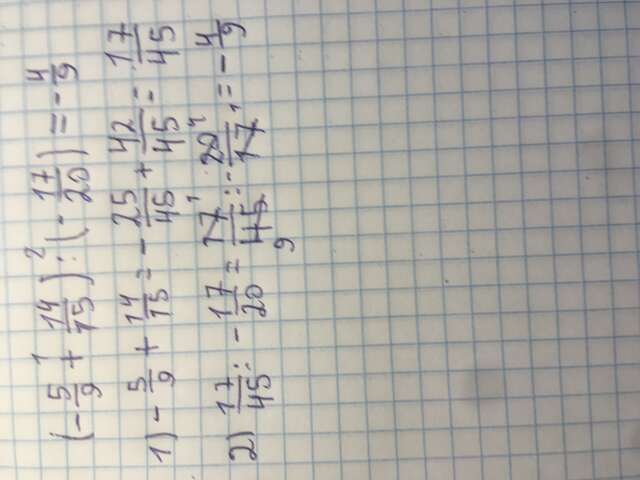 (-5/9 + 14/15) : (-17/20) = -4/9
1) -5/9 + 14/15 = -25/45 + 42/45 = 17/45
2) 17/45 : -17/20 = 17/45 : -20/17 = -4/9